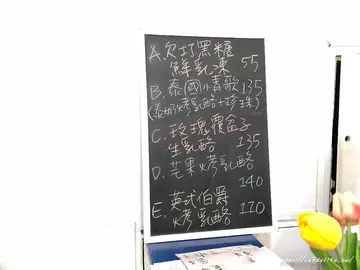 A.欠打黑糖
鮮乳凍 55
B.泰國小青歌135
(泰奶烤乳酪+珍珠)
C.玫瑰覆盆子
生乳酪 135
D.芒果烤乳酪
140
E.英式伯爵
烤乳酪 110